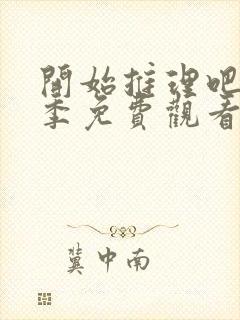 開始推理吧
季免費觀看
冀中南